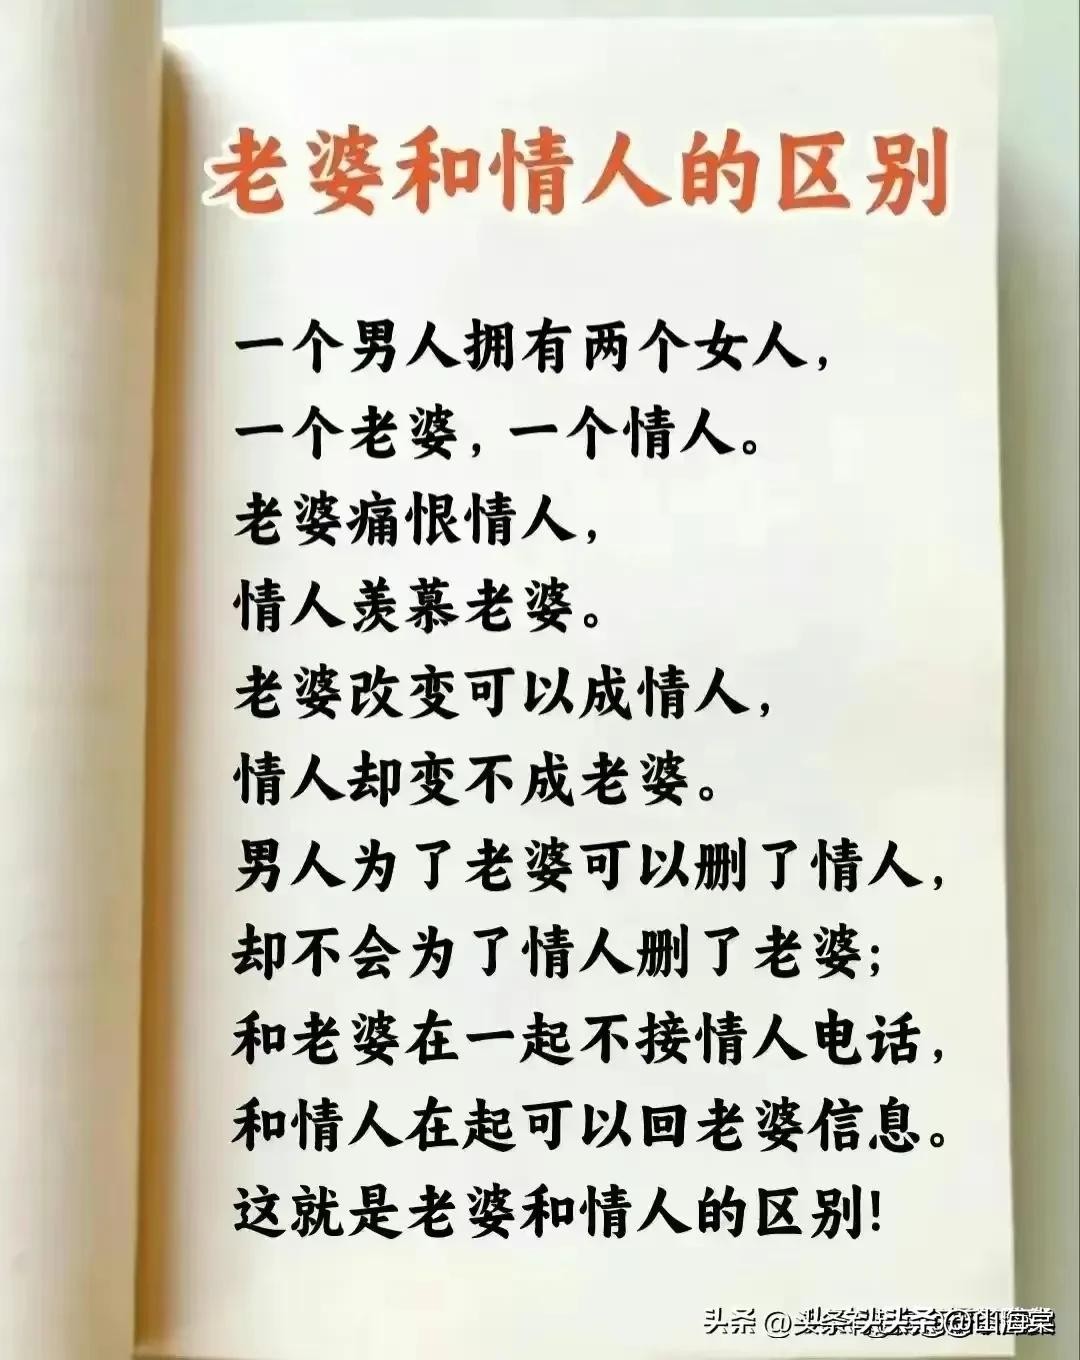 老婆和情人的区别
一个男人拥有两个女人，
一个老婆，一个情人。
老婆痛恨情人，
情人羡慕老婆。
老婆改变可以成情人，
情人却变不成老婆。
男人为了老婆可以删了情人，
却不会为了情人删了老婆；
和老婆在一起不接情人电话，
和情人在起可以回老婆信息。
这就是老婆和情人的区别！
头条